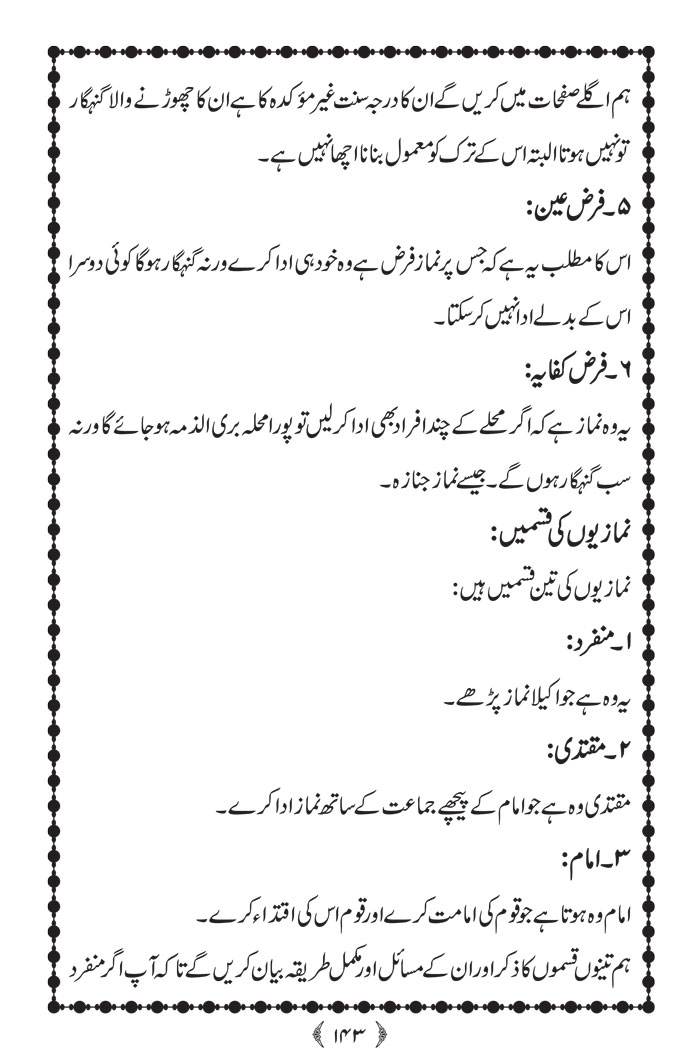 ہم اگلے صفحات میں کریں گے ان کا درجہ سنت غیر مؤکدہ کا ہے ان کا چھوڑنے والا گنہگار
تو نہیں ہوتا البتہ اس کے ترک کو معمول بنانا اچھا نہیں ہے۔
۵۔ فرض عین:
اس کا مطلب یہ ہے کہ جس پر نماز فرض ہے وہ خود ہی ادا کرے ورنہ گنہگار ہوگا کوئی دوسرا
اس کے بدلے ادا نہیں کرسکتا۔
۶۔ فرض کفایہ:
یہ وہ نماز ہے کہ اگر محلے کے چند افراد بھی ادا کرلیں تو پورا محلہ بری الذمہ ہو جائے گا ورنہ
سب گنہگار ہوں گے۔ جیسے نماز جنازہ۔
نمازیوں کی قسمیں:
نمازیوں کی تین قسمیں ہیں:
۱۔ منفرد:
یہ وہ ہے جو اکیلا نماز پڑھے۔
۲۔ مقتدی:
مقتدی وہ ہے جو امام کے پیچھے جماعت کے ساتھ نماز ادا کرے۔
۳۔ امام:
امام وہ ہوتا ہے جو قوم کی امامت کرے اور قوم اس کی اقتداء کرے۔
ہم تینوں قسموں کا ذکر اور ان کے مسائل اور مکمل طریقہ بیان کریں گے تا کہ آپ اگر منفرد
﴿ ۱۴۳ ﴾